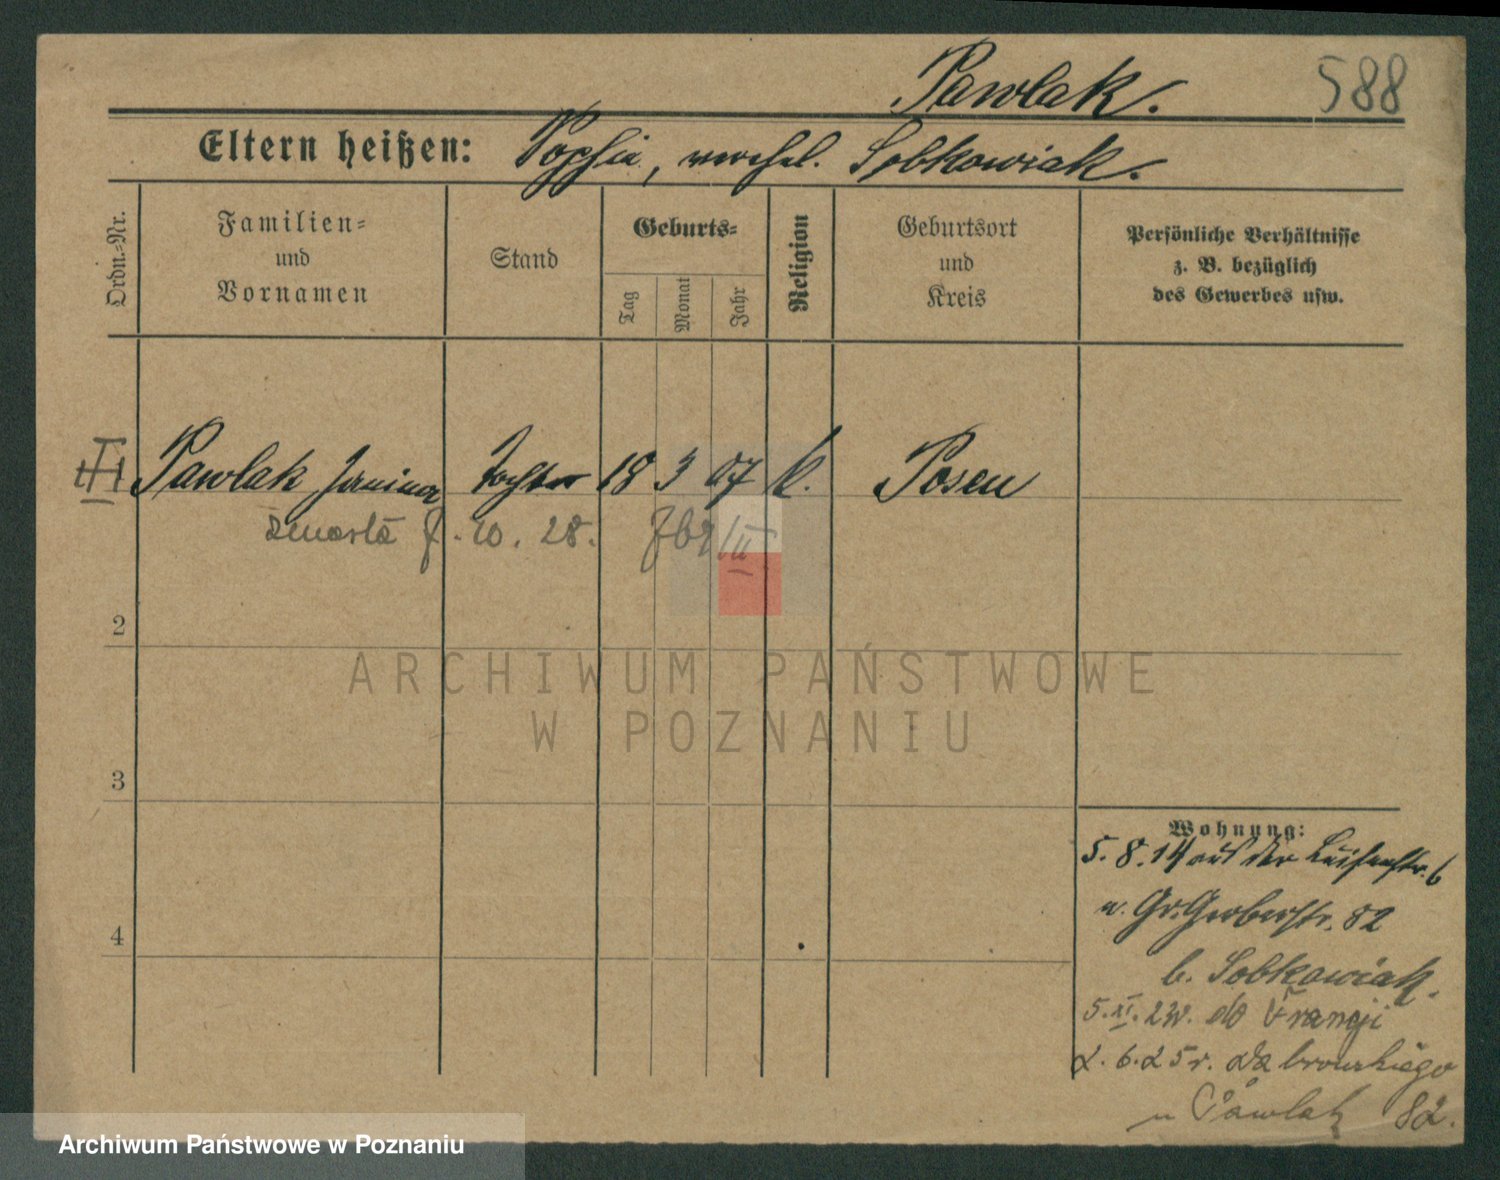 Pawlak. 588
Eltern heißen: Sophie, verehel. Sobkowiak.
Ordn.=Nr.
Familien=
und
Vornamen
Stand
Geburts=
Tag
Monat
Jahr
Religion
Geburtsort
und
Kreis
Persönliche Verhältnisse
z. B. bezüglich
des Gewerbes usw.
Pawlak Janina Tochter 18 3 07 k. Posen
zmarła 10. 28.
2
3
4
Wohnung:
5. 8. 14 aus der Luisenstr. 6
n. Gr. Gerberstr. 82
b. Sobkowiak.
5. XI. do Francji
2. 6. 25 r. Dąbrowskiego
u Pawlak 82.
ARCHIWUM PAŃSTWOWE
W POZNANIU
Archiwum Państwowe w Poznaniu